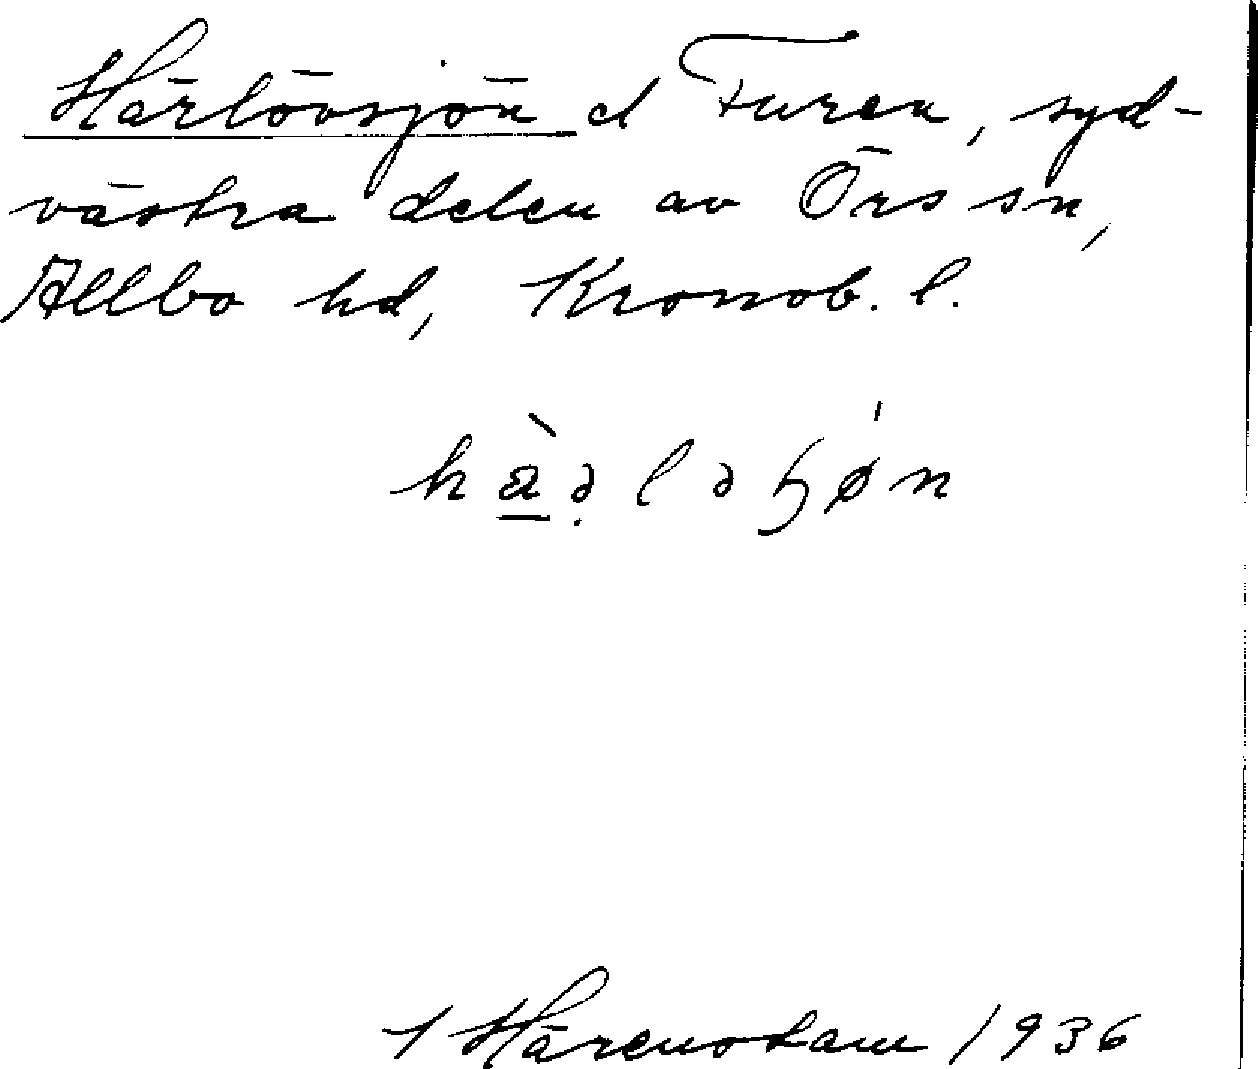 Härlövsjön d Furen, syd-
västra delen av Örs sn,
Allbo hd, Kronob. l.
Härenstam 1936